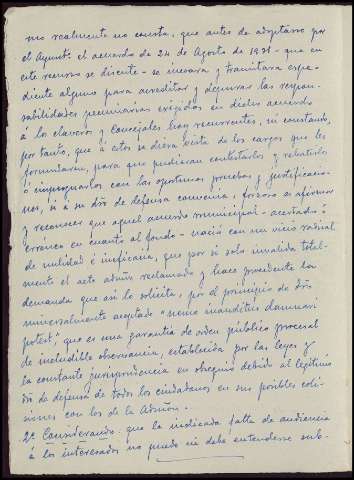 mo realmente no consta, que antes de adoptarse por
el Ayuntº el acuerdo de 24 de Agosto de 1931 - que en
este recurso se discute - se incoara y tramitara expe-
diente alguno para acreditar y depurar las respon-
sabilidades pecuniarias exigidas en dicho acuerdo
á los claveros y Concejales hoy recurrentes, ni constando,
por tanto, que á estos se diera vista de los cargos que les
formularan, para que pudieran contestarlos y rebatirlos
ó impugnarlos con las oportunas pruebas y justificacio-
nes, si á su dro de defensa convenia, forzoso es afirmar
y reconocer que aquel acuerdo municipal - acertado ó
erróneo en cuanto al fondo - nació con un vicio radical
de nulidad é ineficacia, que por si solo invalida total-
mente el acto admvo reclamado y hace procedente la
demanda que asi lo solicita, por el principio de dro
universalmente aceptado "nemo inauditus damnari
potest", que es una garantia de orden público procesal
de ineludible observancia, establecida por las leyes y
la constante jurisprudencia en obsequio debido al legitimo
dro de defensa de todos los ciudadanos en sus posibles coli-
siones con los de la Admón.
2º Considerando: que la indicada falta de audiencia
á los interesados no puede ni debe entenderse sub-